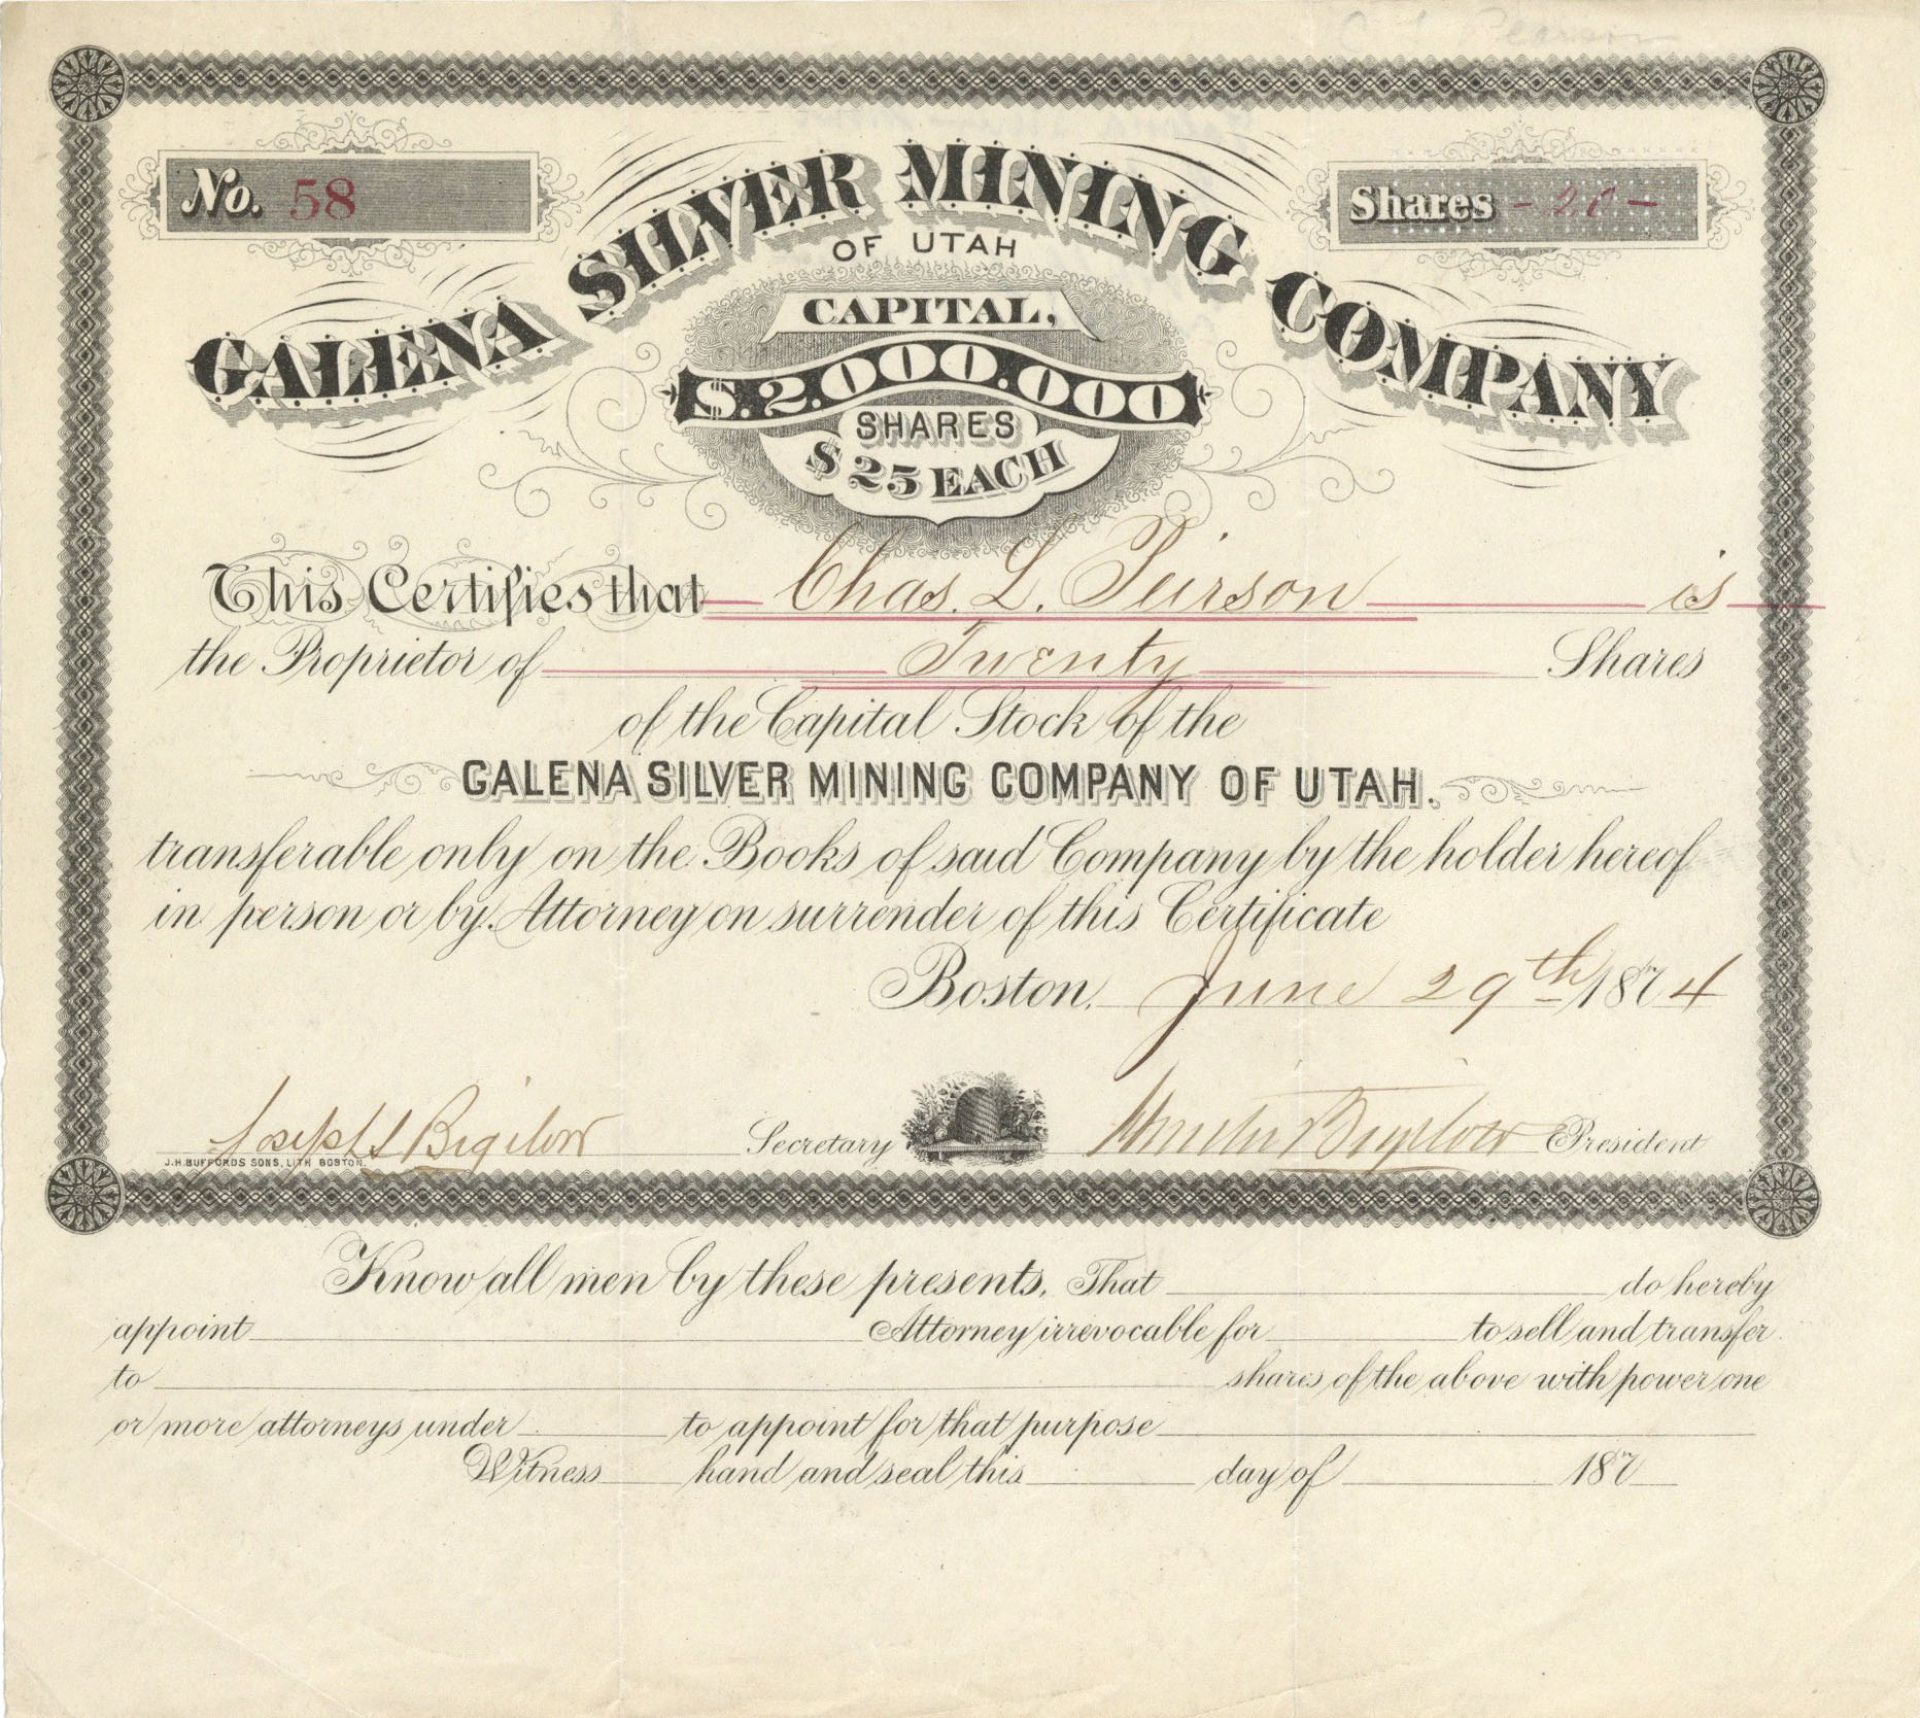 No. 58
Shares - 20 -
GALENA SILVER MINING COMPANY
OF UTAH
CAPITAL,
$.2.000.000
SHARES
$25 EACH
This Certifies that Chas. L. Peirson is
the Proprietor of Twenty Shares
of the Capital Stock of the
GALENA SILVER MINING COMPANY OF UTAH.
transferable only on the Books of said Company by the holder hereof
in person or by Attorney on surrender of this Certificate
Boston, June 29th 1874
Joseph S Bigelow Secretary Bigelow President
J.H. BUFFORDS SONS, LITH BOSTON.
Know all men by these presents, That do hereby
appoint Attorney irrevocable for to sell and transfer
to shares of the above with power one
or more attorneys under to appoint for that purpose
Witness hand and seal this day of 187